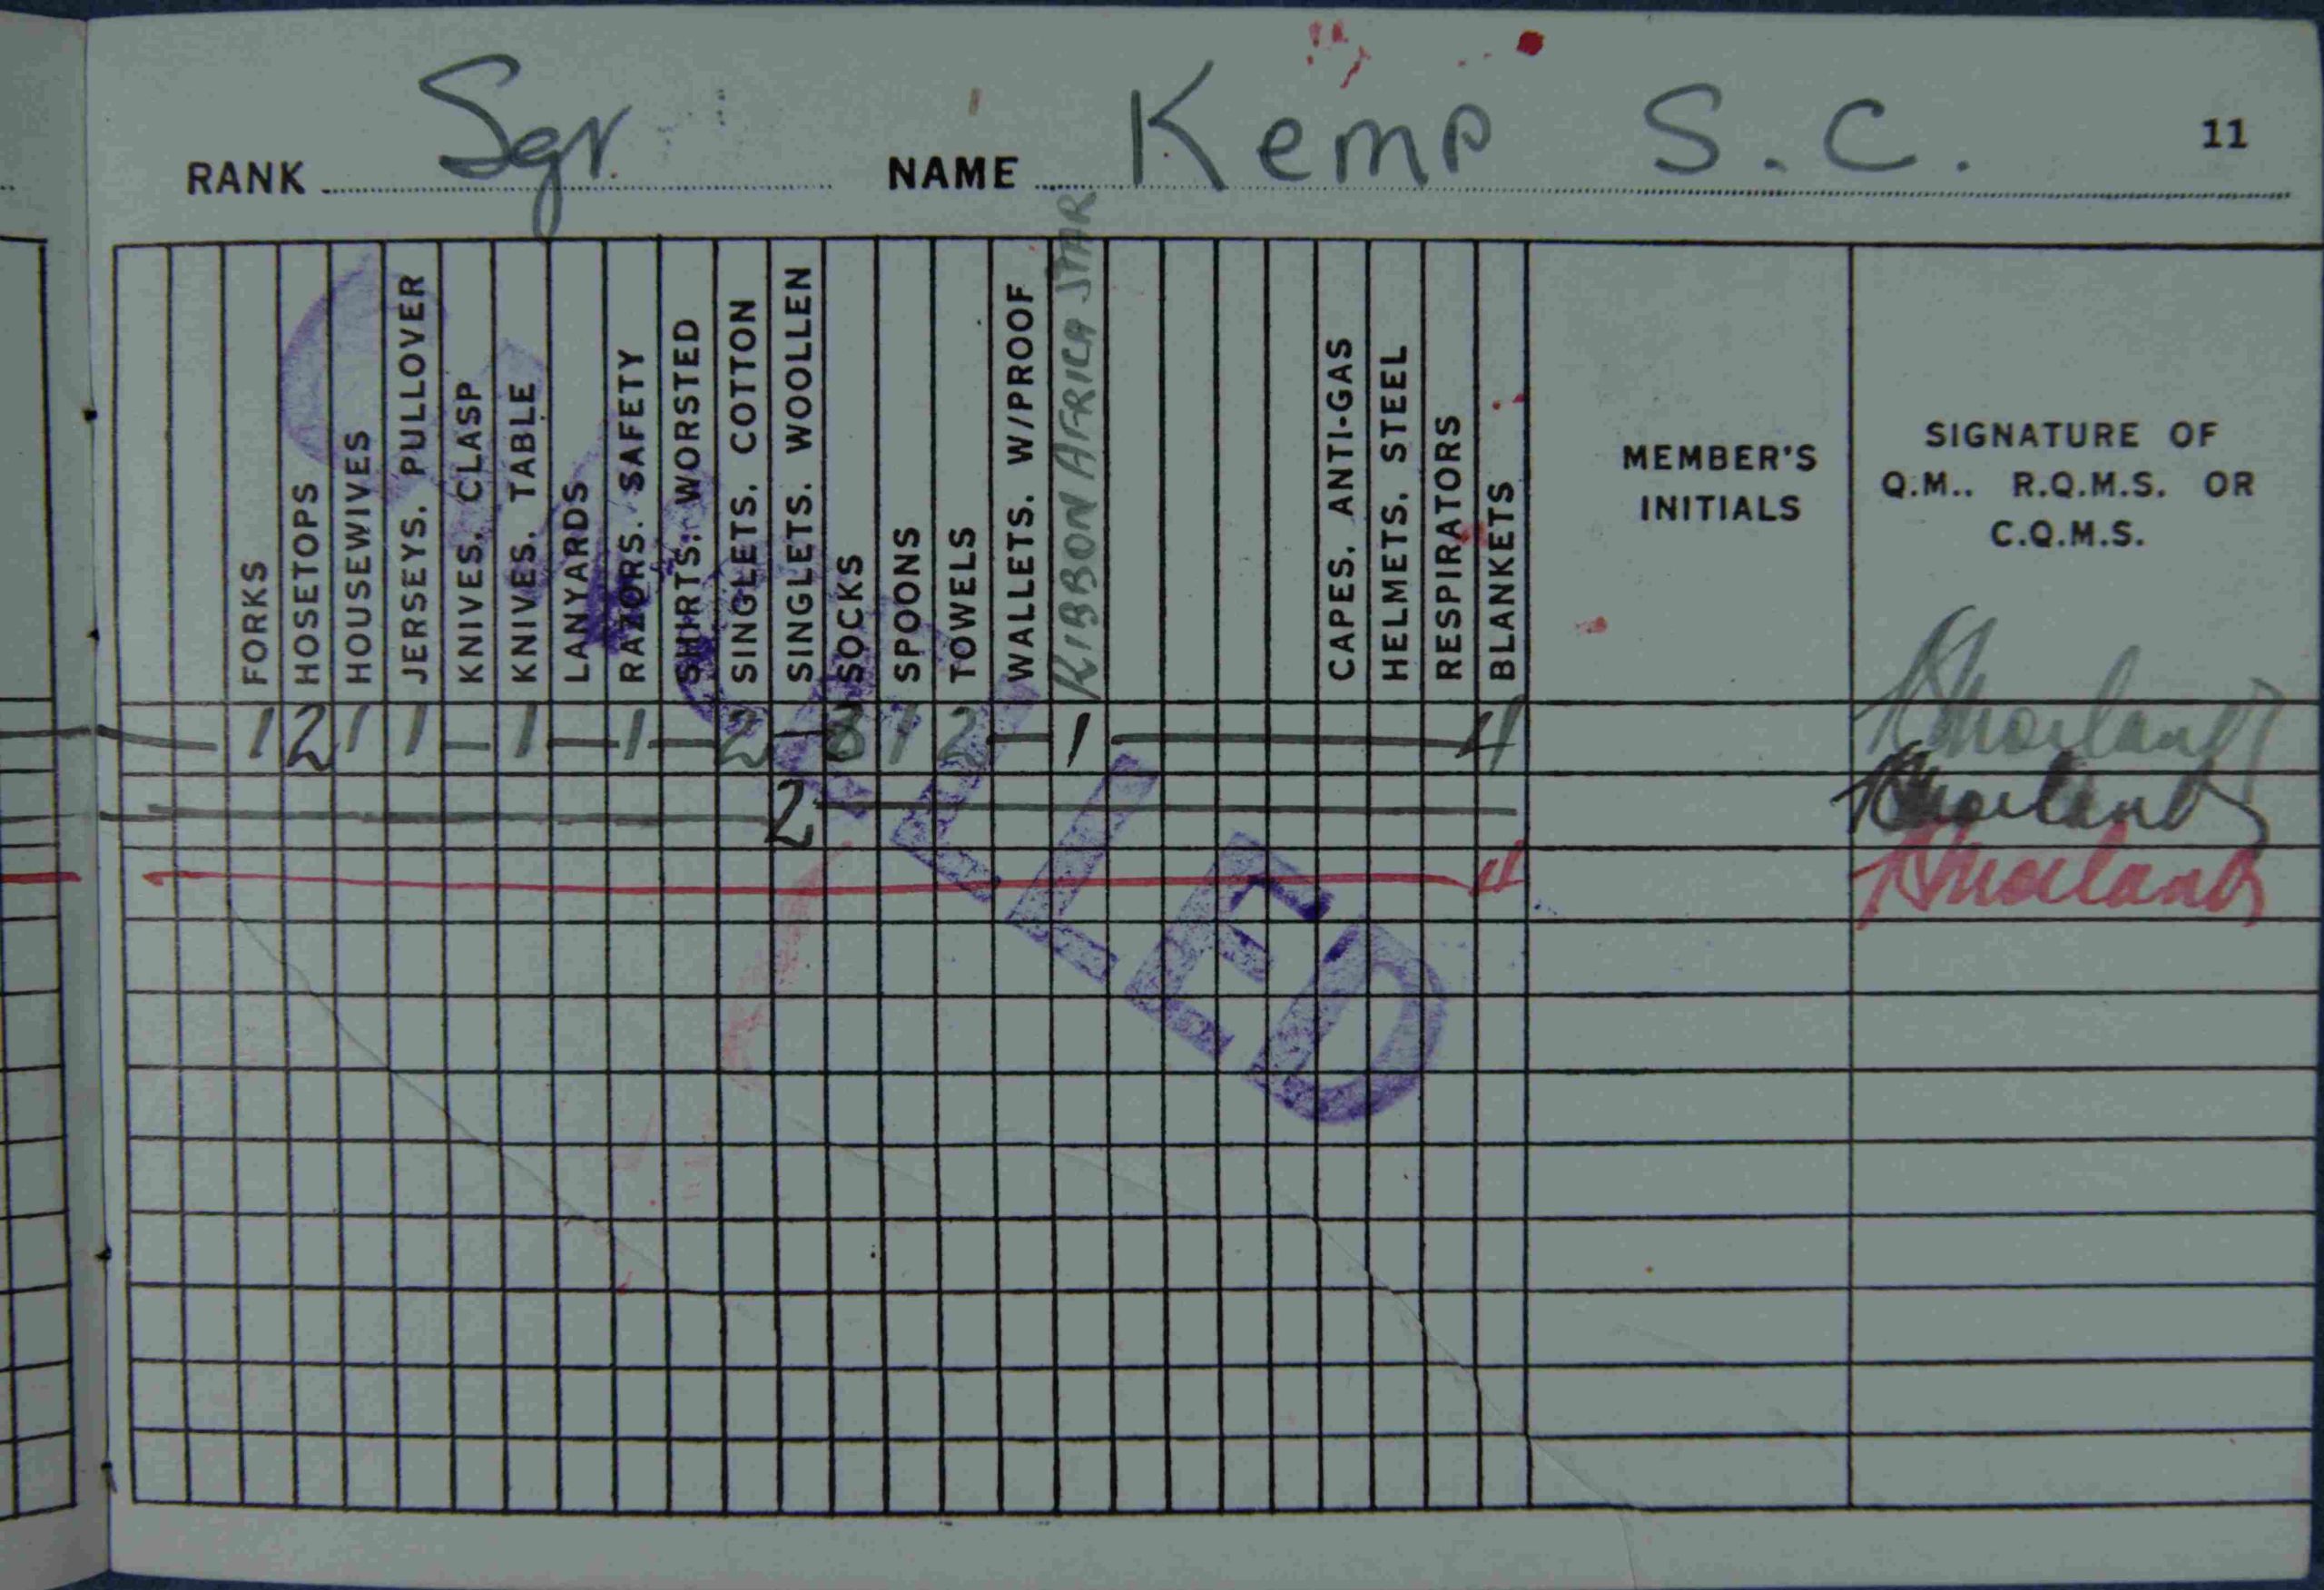 RANK Sgr. NAME Kemp S.C. 11
FORKS
HOSETOPS
HOUSEWIVES
JERSEYS. PULLOVER
KNIVES. CLASP
KNIVES. TABLE
LANYARDS
RAZORS. SAFETY
SHIRTS. WORSTED
SINGLETS. COTTON
SINGLETS. WOOLLEN
SOCKS
SPOONS
TOWELS
WALLETS. W/PROOF
RIBBON AFRICA STAR
CAPES. ANTI-GAS
HELMETS. STEEL
RESPIRATORS
BLANKETS
MEMBER'S
INITIALS
SIGNATURE OF
Q.M.. R.Q.M.S. OR
C.Q.M.S.
1 2 1 1 — 1 — 1 — 2 — 3 1 2 — 1 — 4
2
4
CANCELLED